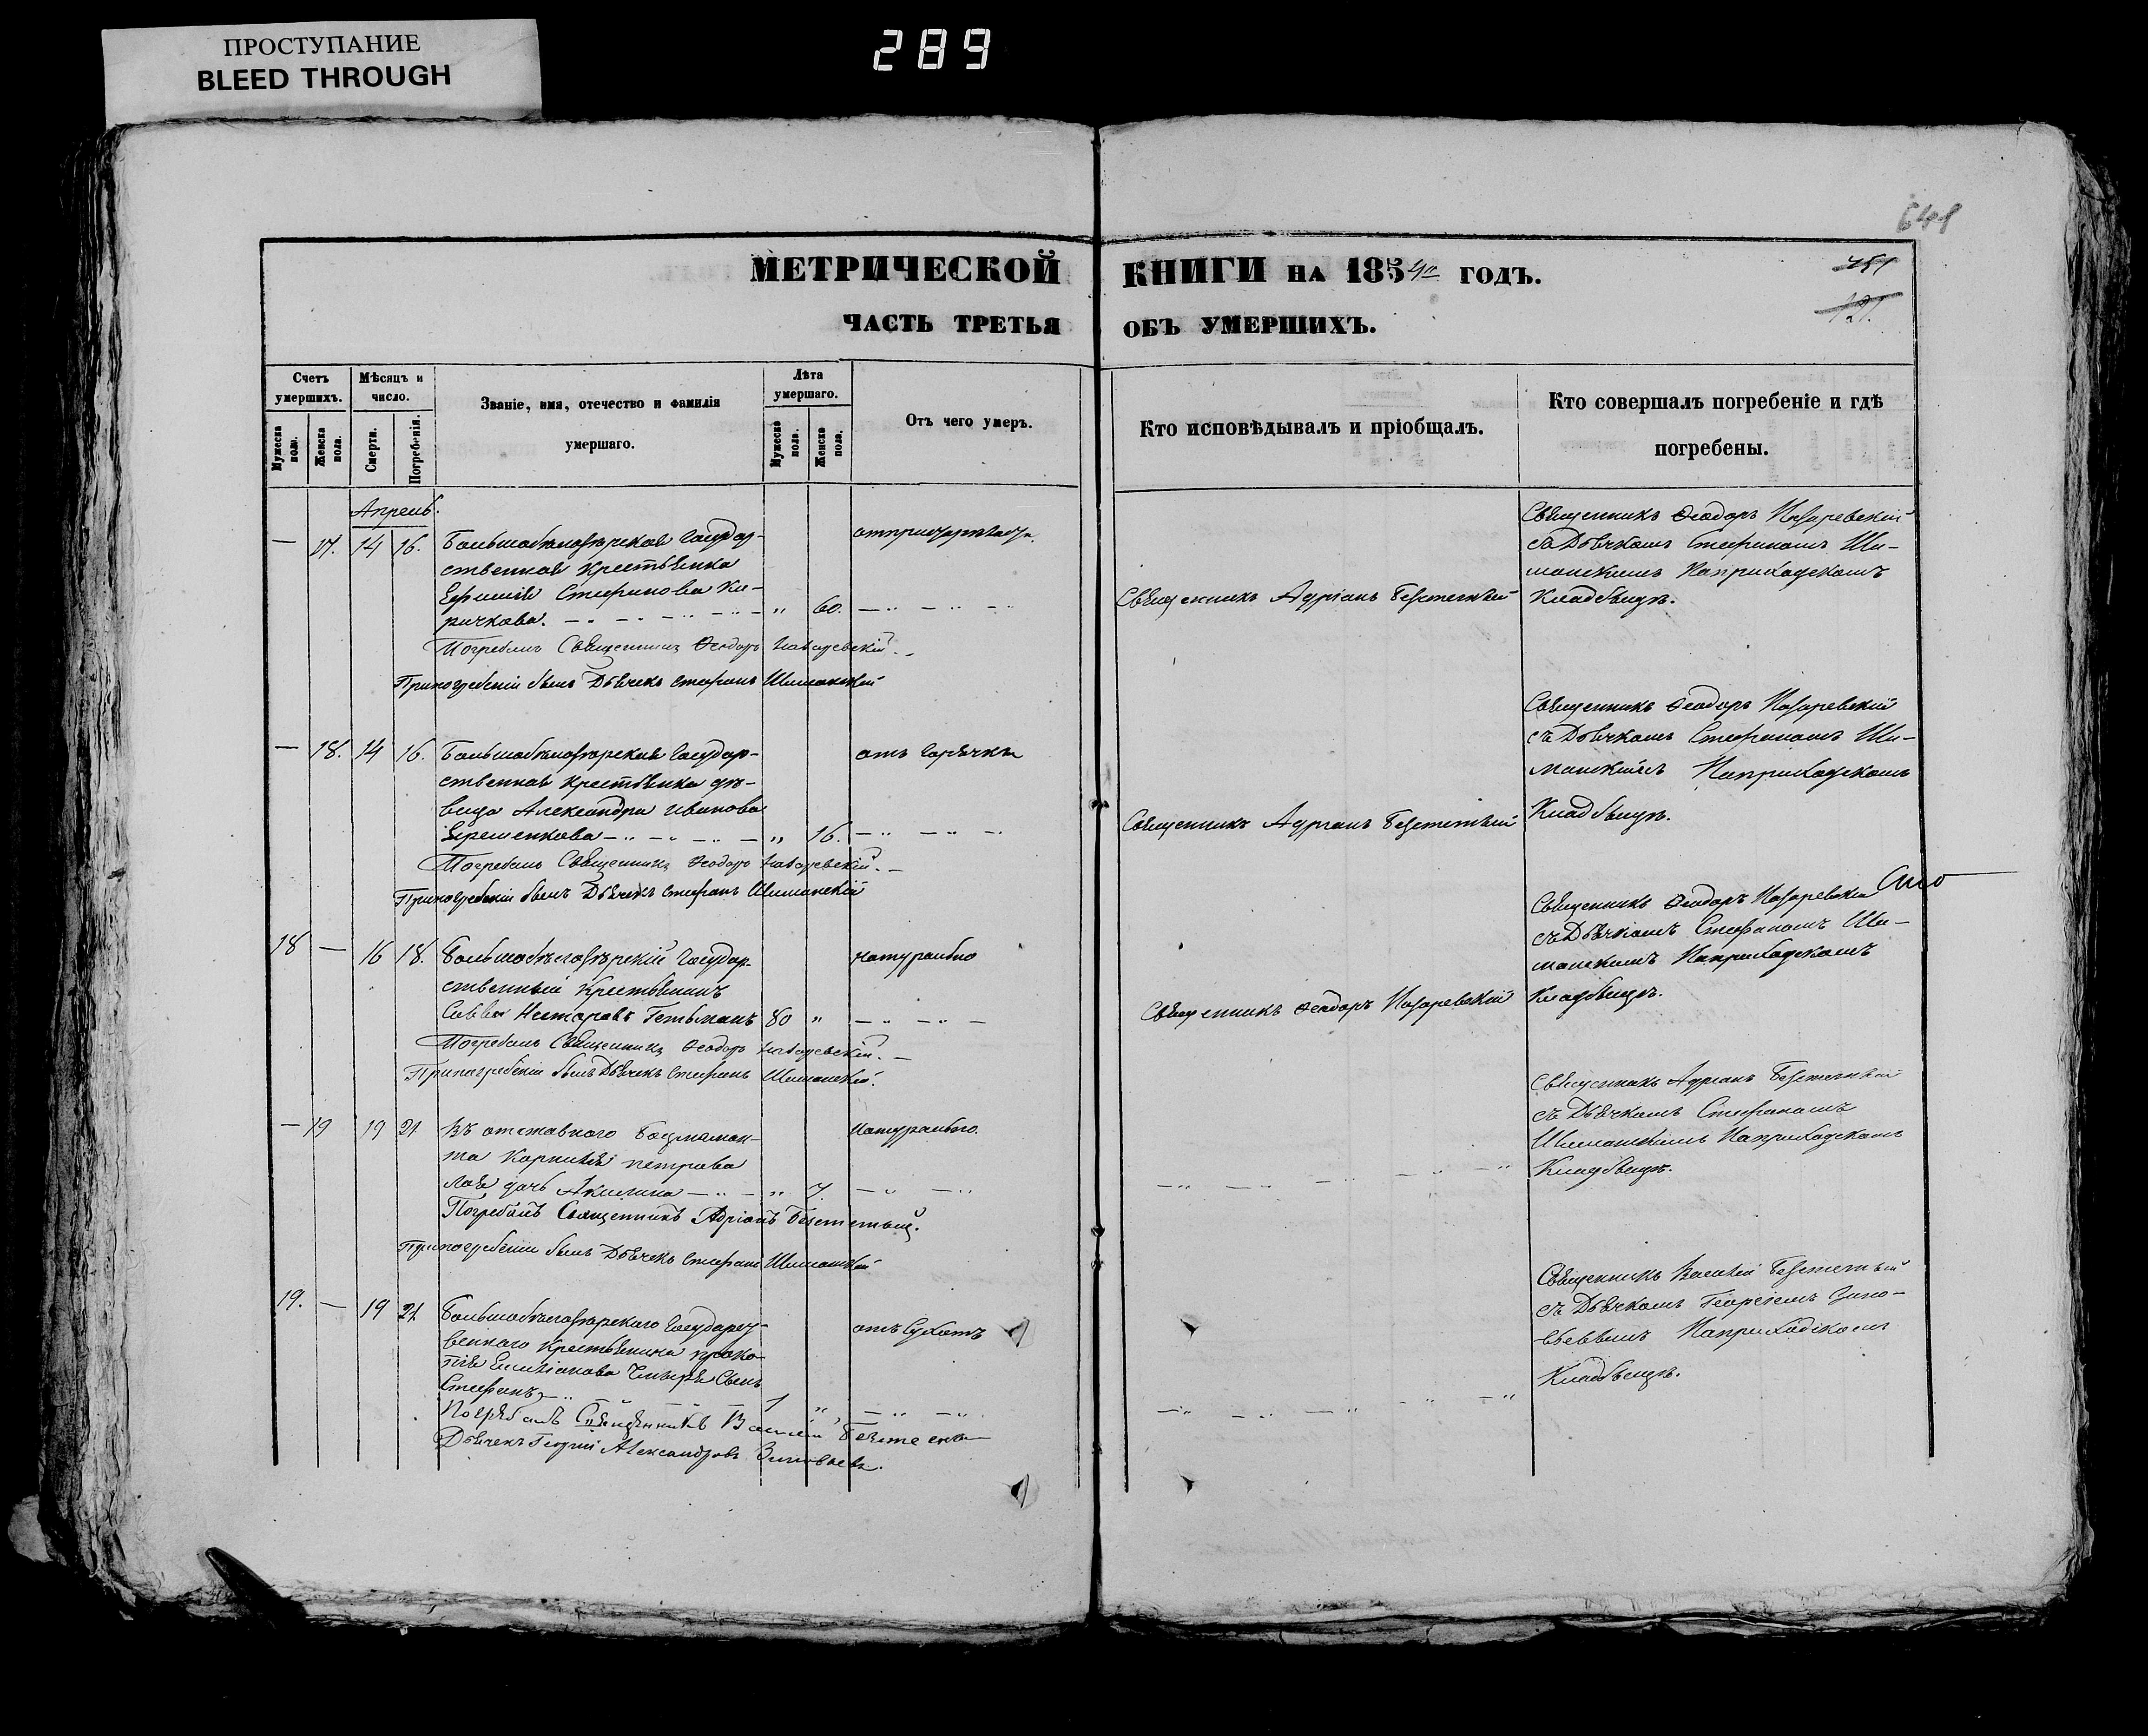 ПРОСТУПАНИЕ
BLEED THROUGH
289
641
МЕТРИЧЕСКОЙ КНИГИ НА 1854го ГОДЪ.
751
121.
ЧАСТЬ ТРЕТЬЯ ОБЪ УМЕРШИХЪ.
Счетъ умершихъ.
Мужеска пола.
Женска пола.
Мѣсяцъ и число.
Смерти.
Погребенія.
Званіе, имя, отечество и фамилія умершаго.
Лѣта умершаго.
Мужеска пола.
Женска пола.
Отъ чего умеръ.
Кто исповѣдывалъ и пріобщалъ.
Кто совершалъ погребеніе и гдѣ погребены.
Апрель.
— 17. 14 16. Большобѣлозѣрская Государ-
ственная крестьянка
Ефимія Стефанова Ки-
ричкова. „ 60.
Погребалъ Священникъ Ѳеодоръ Назаревскій.
Припогребеніи былъ Дьячекъ Стефанъ Шиманскій
Священникъ Адріанъ Безстетный
Священникъ Ѳеодоръ Назаревскій
съ Дьячкомъ Стефаномъ Ши-
манскимъ Наприходскомъ
Кладбищѣ.
— 18. 14 16. Большобѣлозѣрская Государ-
ственная крестьянка дѣ-
вица Александра Иванова
Еременкова „ 16.
отъ Горячки
Погребалъ Священникъ Ѳеодоръ Назаревскій.
Припогребеніи былъ Дьячекъ Стефанъ Шиманскій
Священникъ Адріанъ Безстетный
Священникъ Ѳеодоръ Назаревскій
съ Дьячкомъ Стефаномъ Ши-
манскимъ Наприходскомъ
Кладбищѣ.
18 — 16 18. Большобѣлозѣрскій Государ-
ственный крестьянинъ
Савва Несторовъ Гетьманъ 80 „
натурально
Погребалъ Священникъ Ѳеодоръ Назаревскій.
Припогребеніи былъ Дьячекъ Стефанъ Шиманскій.
Священникъ Ѳеодоръ Назаревскій
Священникъ Ѳеодоръ Назаревскій
съ Дьячкомъ Стефаномъ Ши-
манскимъ Наприходскомъ
Кладбищѣ.
— 19 19 21 отставного
Корнилія Петрова
дочь Акилина „ 7.
Натурально.
Погребалъ Священникъ Адріанъ Безстетный.
Припогребеніи былъ Дьячекъ Стефанъ Шиманскій
Священникъ Адріанъ Безстетный
съ Дьячкомъ Стефаномъ
Шиманскимъ Наприходскомъ
Кладбищѣ.
19. — 19 21. Большобѣлозѣрского Государст-
венного Крестьянина Проко-
пія Емиліанова Сынъ
Стефанъ 1 „
отъ Сухотъ
Погребалъ Священникъ Василій
Дьячекъ Георгій Александровъ Зиновьевъ.
Священникъ Василій Безстетный
съ Дьячкомъ Георгіемъ Зино-
вьевымъ Наприходскомъ
Кладбищѣ.